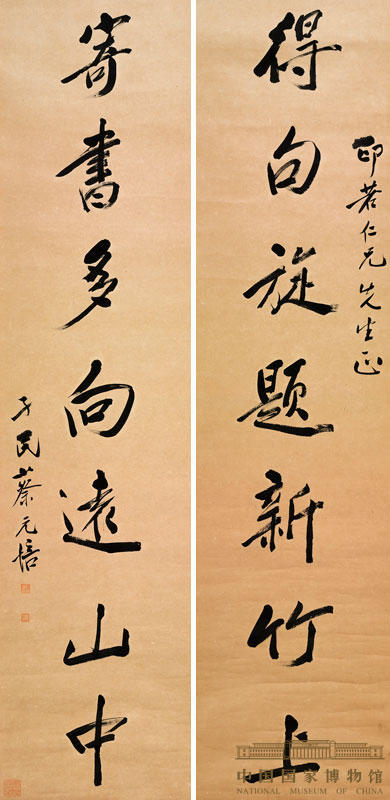 得句旋題新竹上
印若仁兄先生正
寄書多向遠山中
孑民蔡元培
中国国家博物馆
NATIONAL MUSEUM OF CHINA